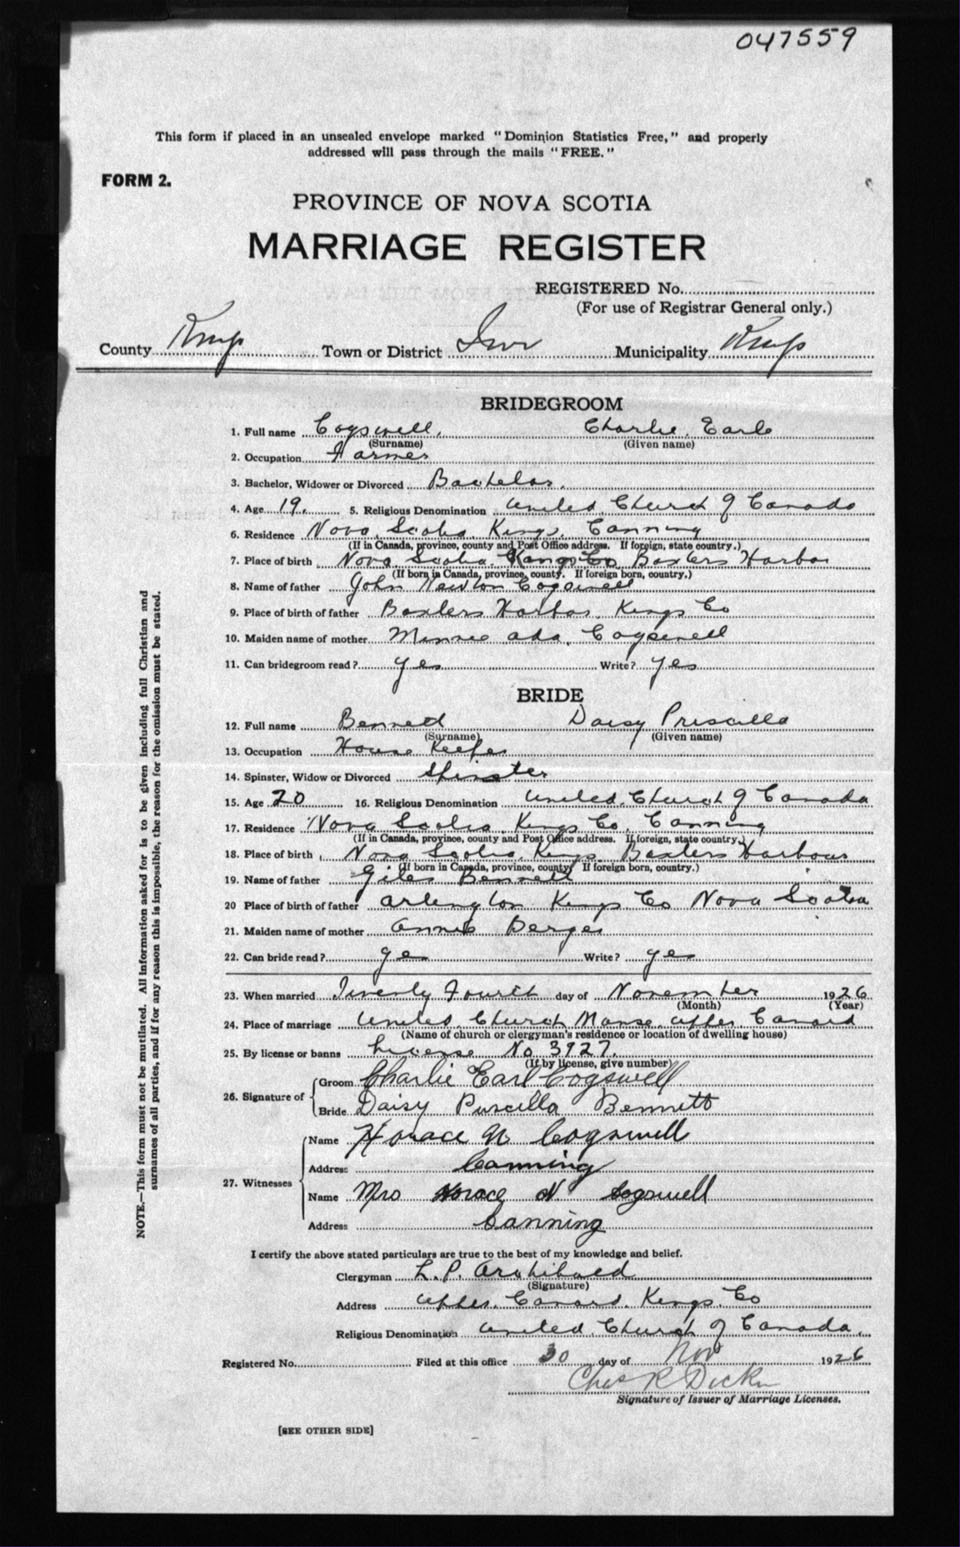 047559
This form if placed in an unsealed envelope marked "Dominion Statistics Free," and properly
addressed will pass through the mails "FREE."
FORM 2.
PROVINCE OF NOVA SCOTIA
MARRIAGE REGISTER
REGISTERED No.
(For use of Registrar General only.)
County Kings Town or District Municipality Kings
BRIDEGROOM
1. Full name Cogswell, Charlie Earle
(Surname) (Given name)
2. Occupation Farmer
3. Bachelor, Widower or Divorced Bachelor.
4. Age 19. 5. Religious Denomination United Church of Canada
6. Residence Nova Scotia Kings Canning
(If in Canada, province, county and Post Office address. If foreign, state country.)
7. Place of birth Nova Scotia Kings Co Baxters Harbor
(If born in Canada, province, county. If foreign born, country.)
8. Name of father John Newton Cogswell
9. Place of birth of father Baxters Harbor Kings Co
10. Maiden name of mother Minnie Ada Cogswell
11. Can bridegroom read? yes Write? yes
BRIDE
12. Full name Bennett Daisy Priscilla
(Surname) (Given name)
13. Occupation House Keeper
14. Spinster, Widow or Divorced Spinster
15. Age 20 16. Religious Denomination United Church of Canada
17. Residence Nova Scotia Kings Co Canning
(If in Canada, province, county and Post Office address. If foreign, state country.)
18. Place of birth Nova Scotia Kings Baxters Harbour
(If born in Canada, province, county If foreign born, country.)
19. Name of father Giles Bennett
20 Place of birth of father Arlington Kings Co Nova Scotia
21. Maiden name of mother Annie
22. Can bride read? yes Write? yes
23. When married Twenty Fourth day of November 1926
(Month) (Year)
24. Place of marriage United Church Manse Upper Canard
(Name of church or clergyman's residence or location of dwelling house)
25. By license or banns License No 3927.
(If by license, give number)
26. Signature of Groom Charlie Earl Cogswell
Bride Daisy Priscilla Bennett
27. Witnesses Name Horace N Cogswell
Address Canning
Name Mrs Horace N Cogswell
Address Canning
I certify the above stated particulars are true to the best of my knowledge and belief.
Clergyman L. P. Archibald
(Signature)
Address Upper Canard. Kings Co
Religious Denomination United Church of Canada.
Registered No. Filed at this office 30 day of Nov 1926
Chas R Dickie
Signature of Issuer of Marriage Licenses.
[SEE OTHER SIDE]
NOTE.—This form must not be mutilated. All information asked for is to be given including full Christian and
surnames of all parties, and if for any reason this is impossible, the reason for the omission must be stated.